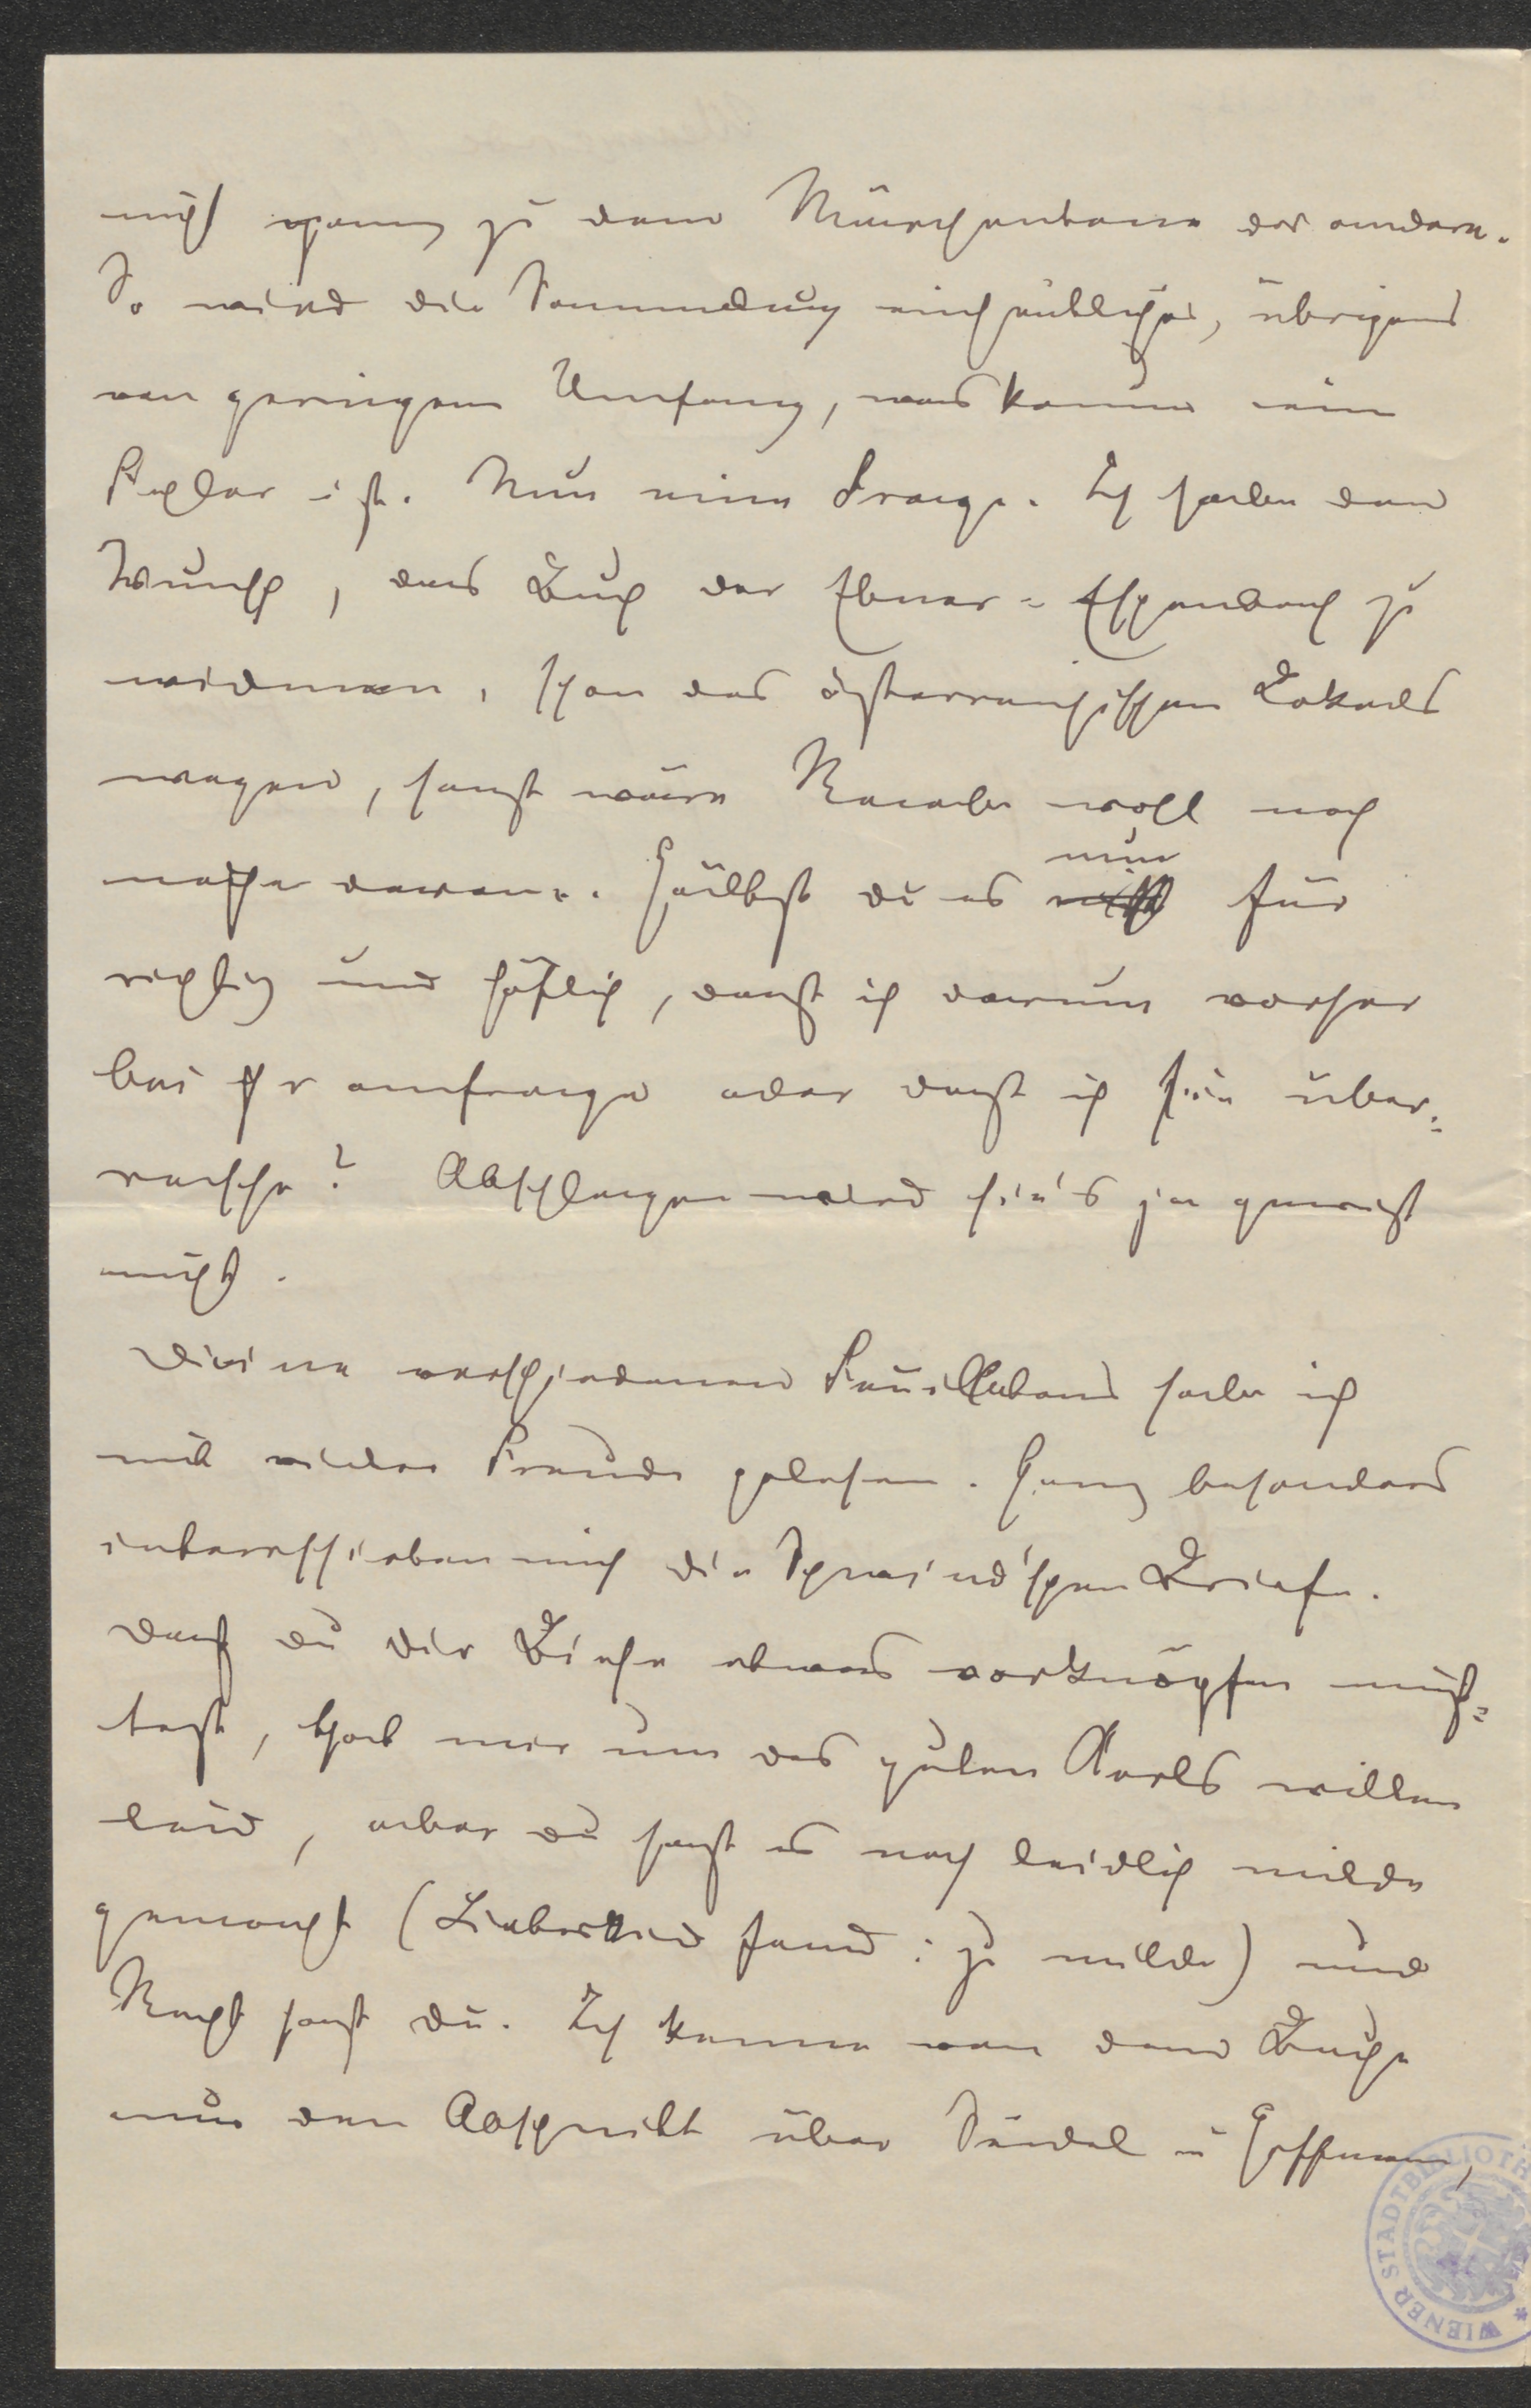 nicht ganz zu dem Märchentone der andern.
So wird die Sammlung einheitlicher, übrigens
von geringem Umfang, was kaum ein
Fehler ist. Nun eine Frage. Ich habe den
Wunsch, das Buch der Ebner-Eschenbach zu
widmen, schon des österreichischen Lokals
wegen, sonst wäre Raabe wohl noch
näher daran. Hältst du es nun für
richtig und höflich, daß ich darum vorher
bei ihr anfrage oder daß ich sie über-
rasche? Abschlagen wird sie's ja gewiß
nicht.
Deine verschiedenen Feuilletons habe ich
mit vieler Freude gelesen. Ganz besonders
interessieren mich die Schwind'schen Briefe.
Daß du dir Biese etwas vorknöpfen muß-
test, that mir um des guten Kerls willen
leid, aber du hast es noch leidlich milde
gemacht (Lieberkind fand: zu milde) und
Recht hast du. Ich kenne von dem Buche
nur den Abschnitt über Seidel u Hoffmann,
WIENER STADTBIBLIOTH